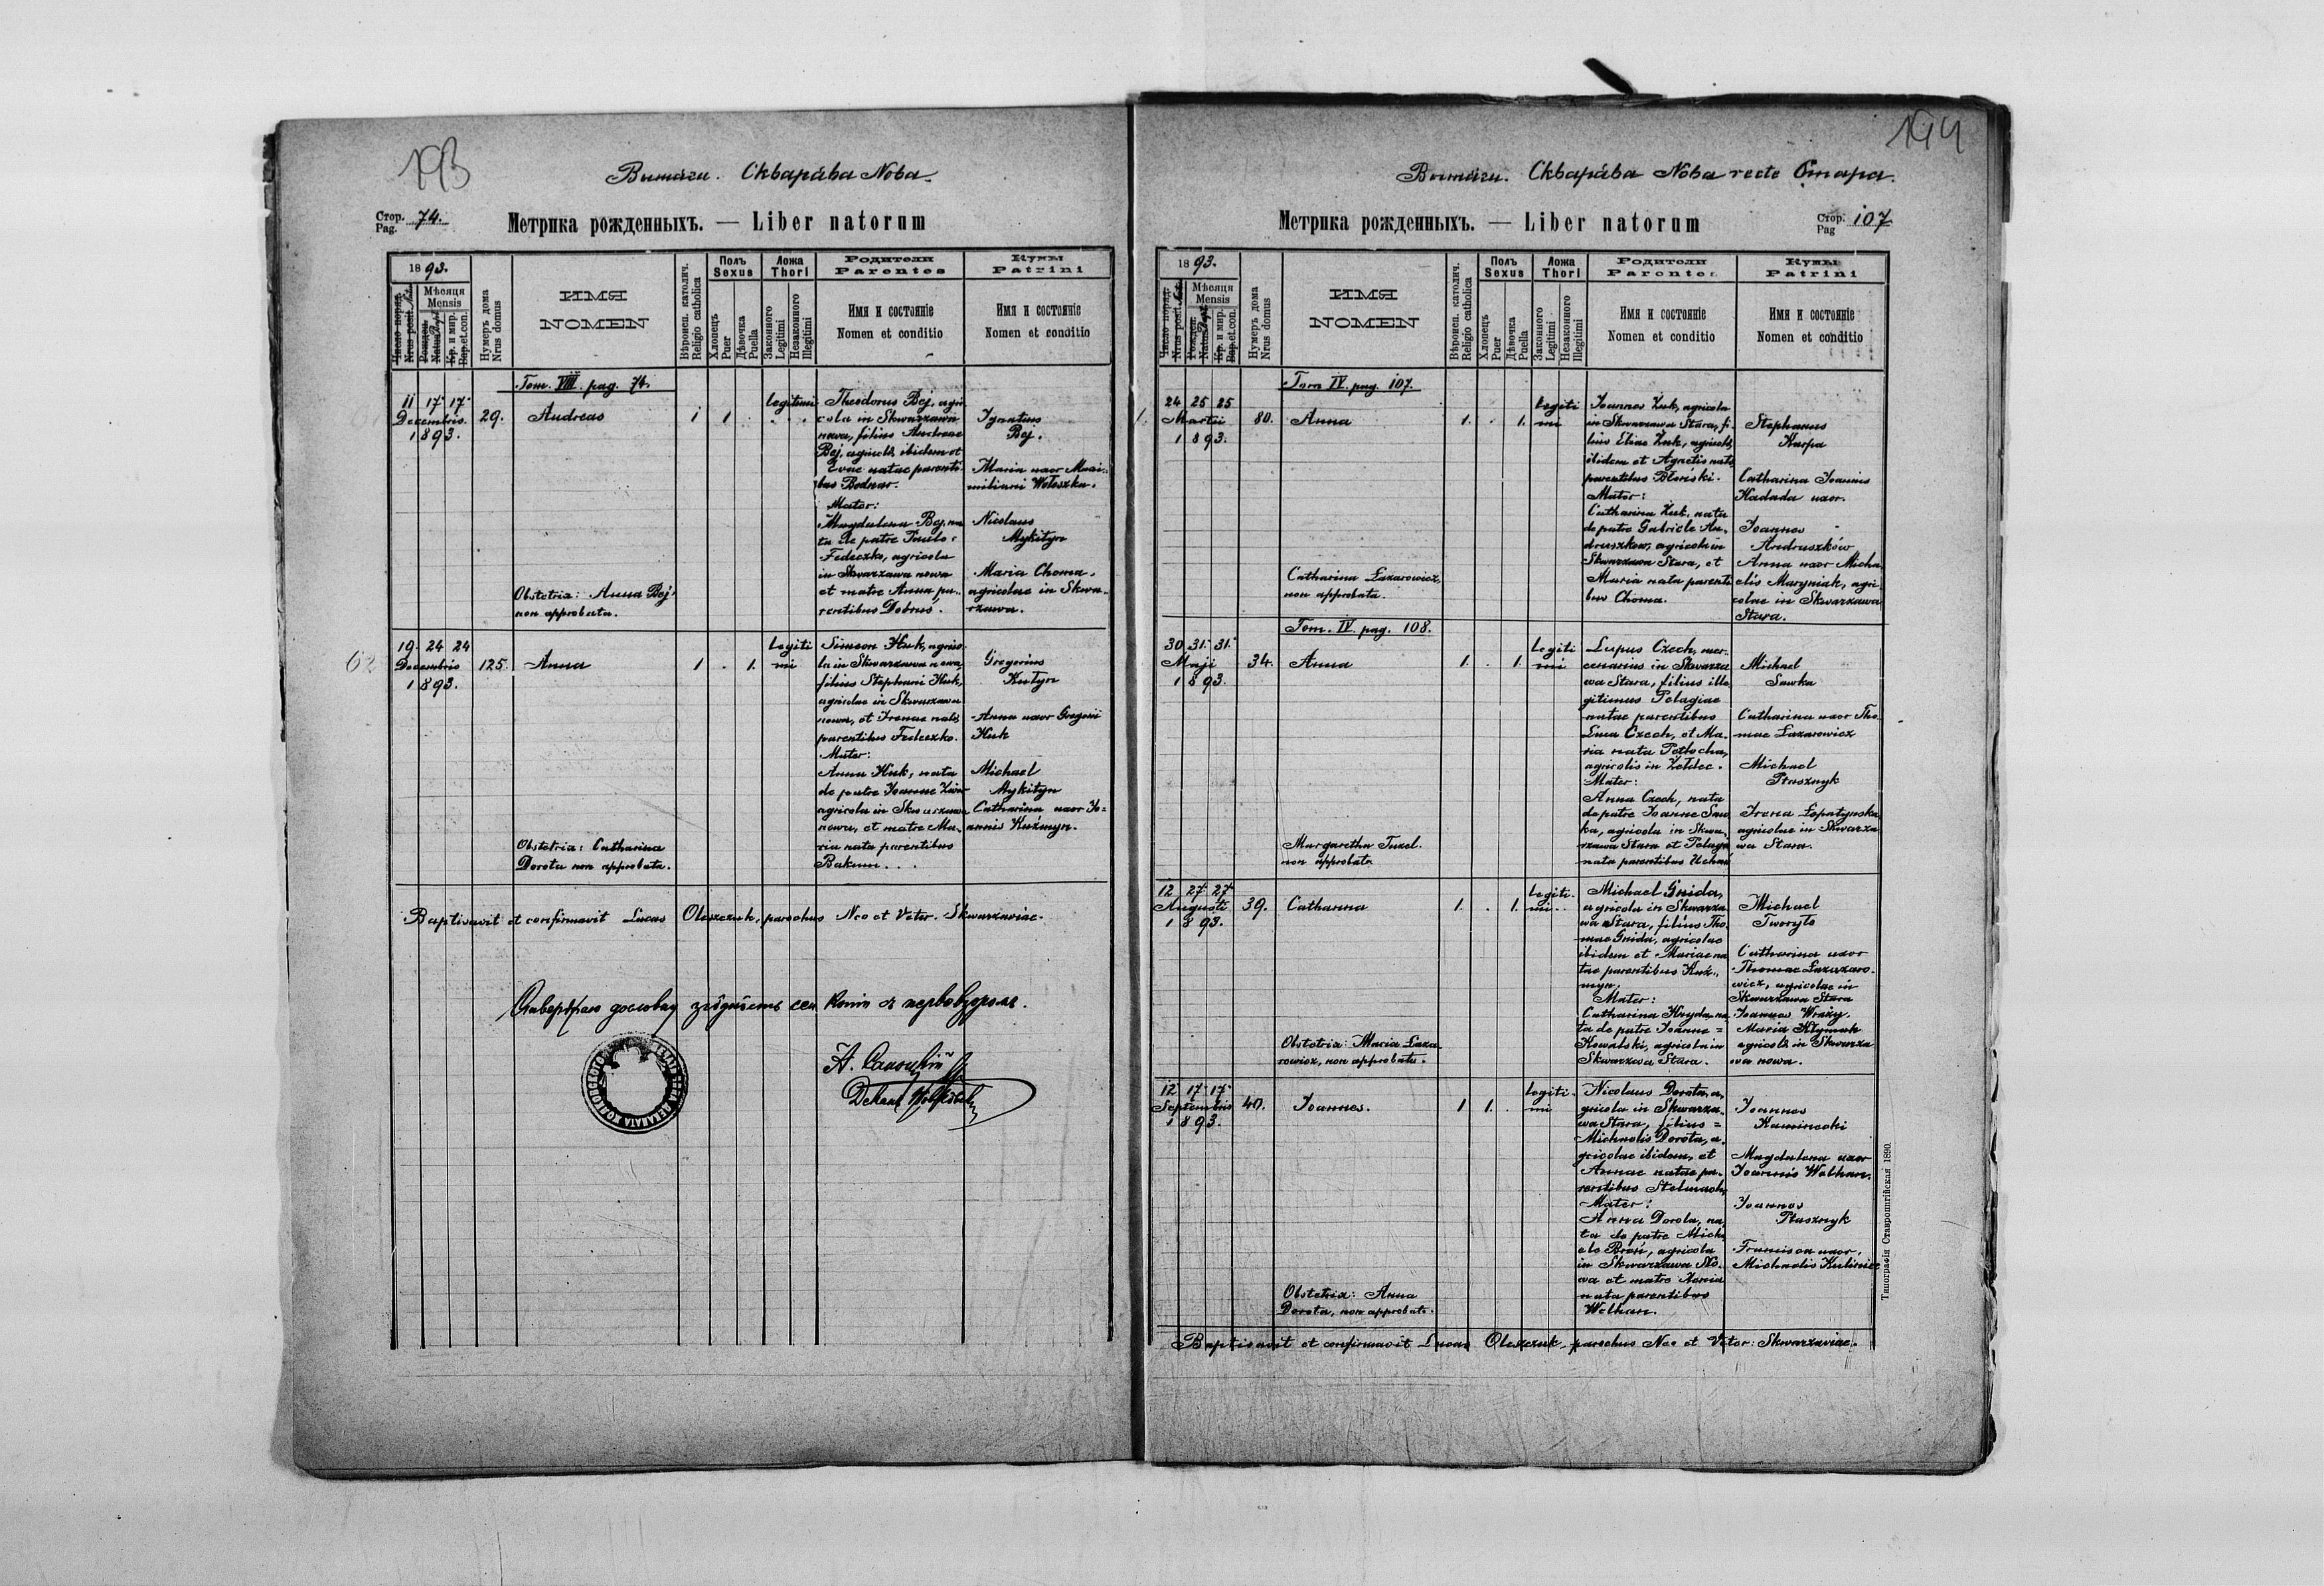 193
Витягъ. Скварѣва Nова.
Стор. Pag. 74.
Метрика рожденныхъ. — Liber natorum
1893.
Число поряд. Nrus posit.
Мѣсяця Mensis
Рожден. Natus
Кр. и мир. Bap. et con.
Нумеръ дома Nrus domus
ИМЯ NOMEN
Вѣроисп. католич. Religio catholica
Полъ Sexus
Хлопецъ Puer
Дѣвочка Puella
Ложа Thori
Законного Legitimi
Незаконного Illegitimi
Родители Parentes
Имя и состояніе Nomen et conditio
Кумы Patrini
Имя и состояніе Nomen et conditio
Tom. VIII. pag. 74.
11 17 17
Decembris
1893.
29.
Andreas
1 1
legitimi
Theodorus Bej, agri
cola in Skwarzawa
nowa, filius Andreae
Bej, agricolae ibidem et
Evae natae parenti
bus Bodnar.
Mater:
Magdalena Bej, na
ta de patre Paulo
Fedeczko, agricola
in Skwarzawa nowa
et matre Anna pa-
rentibus Dobrus.
Ignatius
Bej.
Maria uxor Maxi-
miliani Wołoszka.
Nicolaus
Mykityn
Maria Choma,
agricolae in Skwa-
rzawa.
Obstetrix: Anna Bej,
non approbata.
62
19 24 24
Decembris
1893.
125.
Anna
1 . 1.
Legiti
mi
Simeon Huk, agrico-
la in Skwarzawa nowa
filius Stephani Huk,
agricolae in Skwarzawa
nowa, et Irenae natae
parentibus Fedeczko.
Mater:
Anna Huk, nata
de patre Joanne
agricola in Skwarzawa
nowa, et matre Ma-
ria nata parentibus
Bakum . . .
Gregorius
Kutyn
Anna uxor Gregorii
Huk
Michael
Mykityn
Catharina uxor Jo=
annis Kuźmyn.
Obstetrix: Catharina
Dorota non approbata.
Baptisavit et confirmavit Lucas Oleszczuk, parochus Neo et Veter. Skwarzaviae.
Стверджаю дословну згôднôсть сеи копіи зъ первовзоромъ.
194
Витягъ. Скварѣва Nова recte Стара.
Метрика рожденныхъ. — Liber natorum
Стор. Pag 107
1893.
Число поряд. Nrus posit.
Мѣсяця Mensis
Рожден. Natus
Кр. и мир. Bap. et con.
Нумеръ дома Nrus domus
ИМЯ NOMEN
Вѣроисп. католич. Religio catholica
Полъ Sexus
Хлопецъ Puer
Дѣвочка Puella
Ложа Thori
Законного Legitimi
Незаконного Illegitimi
Родители Parentes
Имя и состояніе Nomen et conditio
Кумы Patrini
Имя и состояніе Nomen et conditio
Tom IV. pag. 107.
24 25 25
Martii
1893.
80.
Anna
1. . 1.
Legiti
mi
Joannes Żuk, agricola
in Skwarzawa Stara, fi-
lius Eliae Żuk, agricolae
ibidem et Agnetis natae
parentibus Błoński.
Mater:
Catharina Żuk, nata
de patre Gabriele An-
druszków, agricola in
Skwarzawa Stara, et
Maria nata parenti
bus Choma.
Stephanus
Karpa
Catharina Joannis
Kadada uxor.
Joannes
Andruszków
Anna uxor Micha
elis Maryniak, agri
colae in Skwarzawa
Stara.
Catharina Łazarowicz,
non approbata.
Tom. IV. pag. 108.
30 31. 31.
Maji
1893.
34.
Anna
1. . 1.
Legiti
mi
Lupus Czech, mer-
cenarius in Skwarza
wa Stara, filius ille
gitimus Pelagiae
natae parentibus
Luca Czech, et Ma-
ria nata Pełłocha,
agricolis in Żełdec.
Mater:
Anna Czech, nata
de patre Joanne Saw
ka, agricola in Skwa-
rzawa Stara et Pelagia
nata parentibus
Michael
Sawka
Catharina uxor Tho-
mae Łazarowicz
Michael
Ptasznyk
Irena Łopatynska
agricolae in Skwarza
wa Stara.
Margaretha Tuzel.
non approbata
12 27 27
Augusti
1893.
39.
Catharina
1. . 1.
Legiti-
mi..
Michael Gnida,
agricola in Skwarza
wa Stara, filius Tho
mae Gnida, agricolae
ibidem et Mariae na
tae parentibus Kuź-
myn.
Mater:
Catharina Hnyda, na
ta de patre Joanne =
Kowalski, agricola in
Skwarzawa Stara.
Michael
Tworyło
Catharina uxor
Thomae Łazazaro-
wicz, agricolae in
Skwarzawa Stara
Joannes Wraży.
Maria Kłymak
agricolae in Skwarza
wa nowa.
Obstetrix: Maria Łaza
rowicz, non approbata.
12 17 17
Septembris
1893.
40.
Joannes.
1 1. .
Legiti-
mi
Nicolaus Dorota, a,
gricola in Skwarza-
wa Stara, filius =
Michaelis Dorota, a.
gricolae ibidem, et
Annae natae pa-
rentibus Stelmach,
Mater:
Anna Dorota, na
ta de patre Micha
ele Broń, agricola
in Skwarzawa No-
wa et matre Xenia
nata parentibus
Welhan.
Joannes
Kaminecki
Magdalena uxor
Joannis Walhan.
Joannes
Ptasznyk
Francisca uxor
Michaelis Kuliniec
Obstetrix: Anna
Dorota, non approbata.
Baptisavit et confirmavit Lucas Oleszczuk, parochus Neo et Veter: Skwarzaviae.
Типографія Ставропигійская 1890.